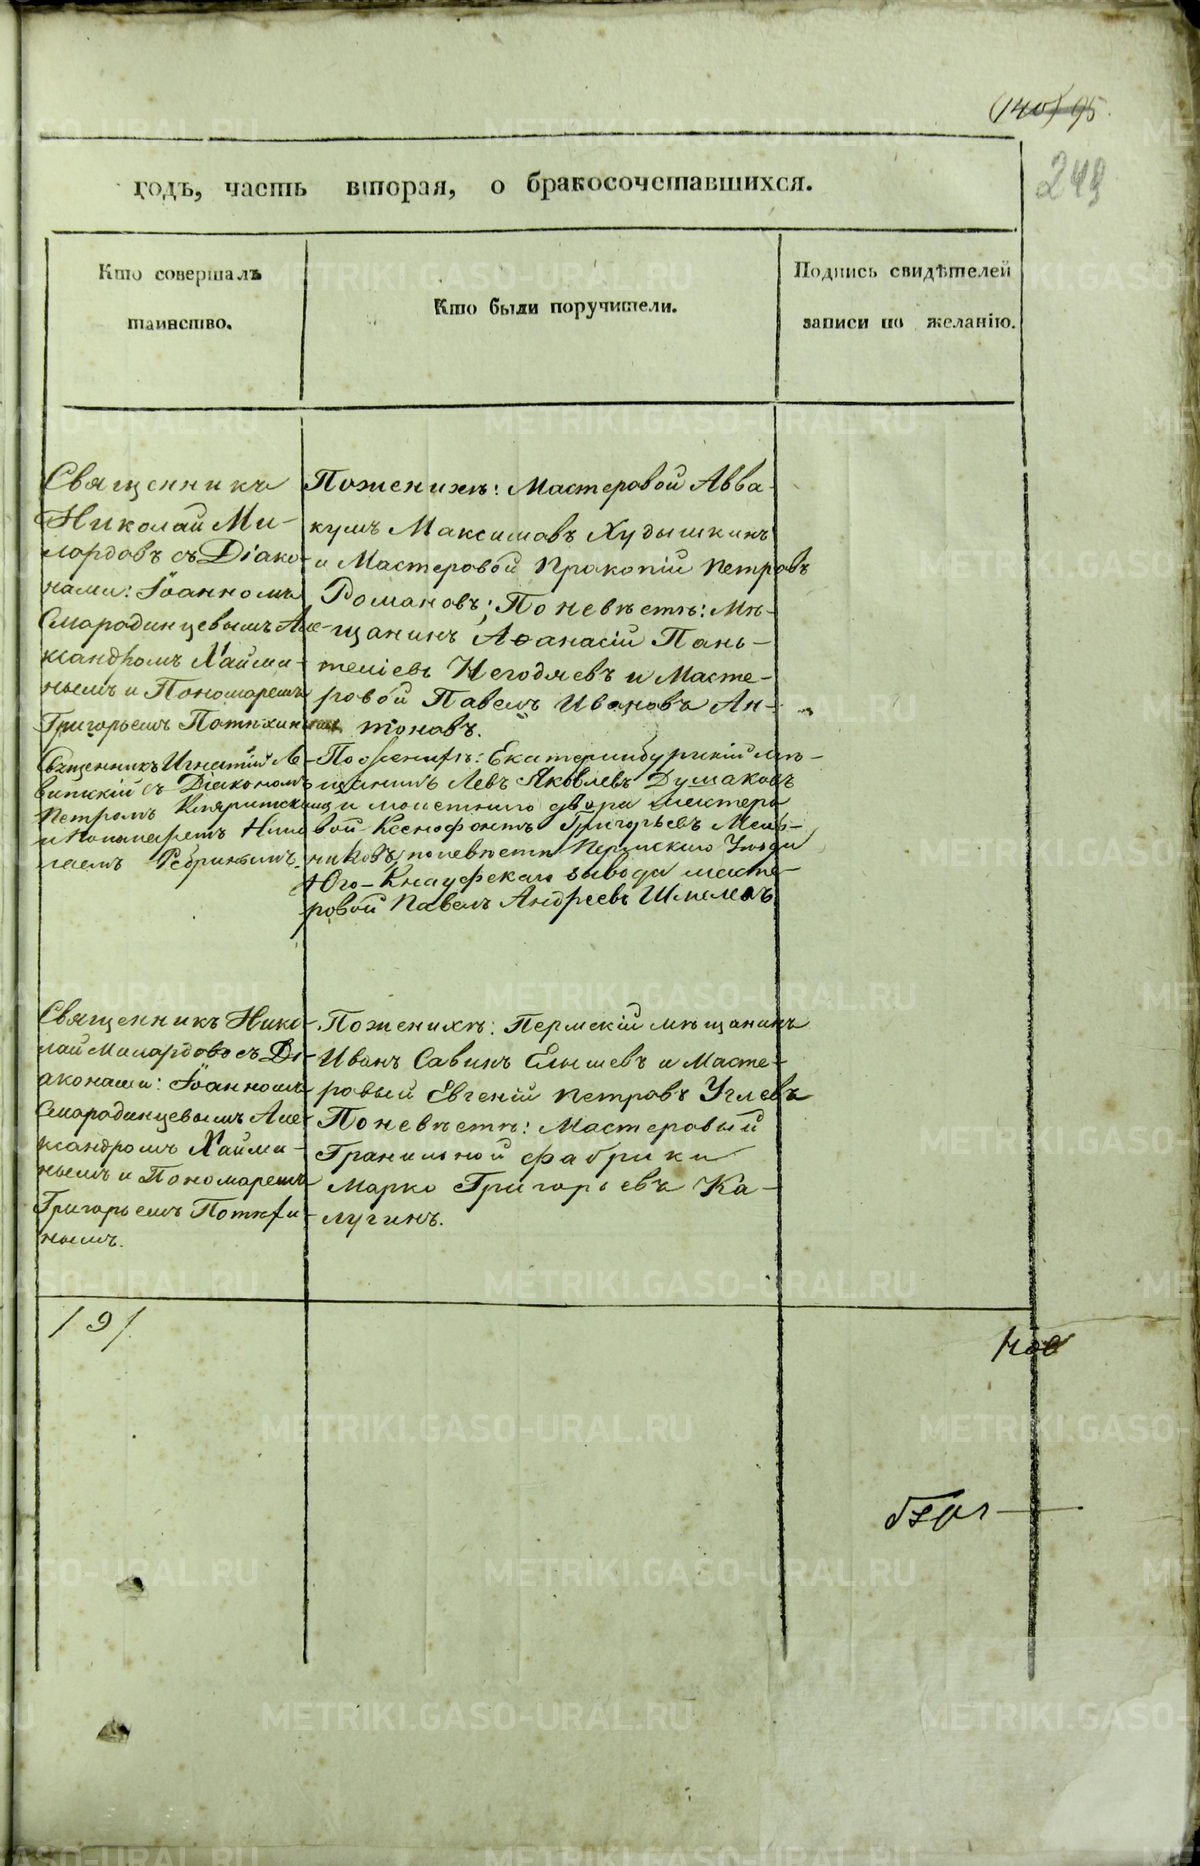 (140) 95.
249
годъ, часть вторая, о бракосочетавшихся.
Кто совершалъ
таинство.
Кто были поручители.
Подпись свидѣтелей
записи по желанію.
Священникъ
Николай Ми-
лордовъ съ Діако-
нами: Іоанномъ
Смородинцевымъ Але-
ксандромъ Хайми-
нымъ и Пономаремъ
Григорьемъ Потѣхинымъ
Поженихѣ: Мастеровой Авва-
кумъ Максимовъ Худышкинъ
и Мастеровой Прокопій Петровъ
Романовъ; Поневѣстѣ: Мѣ-
щанинъ Аѳанасій Пань-
телѣевъ Негодяевъ и Масте-
ровой Павелъ Ивановъ Ан-
тоновъ.
Священникъ Игнатій Ле-
витскій съ Діакономъ
Петромъ
и Пономаремъ Нико
лаемъ Ребринымъ.
Поженихѣ: Екатеринбургскій мѣ-
щанинъ Левъ Яковлевъ Душаковъ
и монетнаго двора мастеро
вой Ксенофонтъ Григорьевъ Мель-
никовъ, поневѣсте Пермскаго Уезда
Юго-Кнауфскаго завода масте-
ровой Павелъ Андреевъ
Священникъ Нико-
лай Милордовъ съ Ді-
аконами: Іоанномъ
Смородинцевымъ Але-
ксандромъ Хайми-
нымъ и Пономаремъ
Григорьемъ Потѣхи-
нымъ.
Поженихѣ: Пермскій мѣщанинъ
Иванъ Савинъ Елышевъ и Масте-
ровый Евгеній Петровъ Углевъ
Поневѣстѣ: Мастеровый
Гранильной фабрики
Марко Григорьевъ Ка-
лугинъ.
/ 9 /